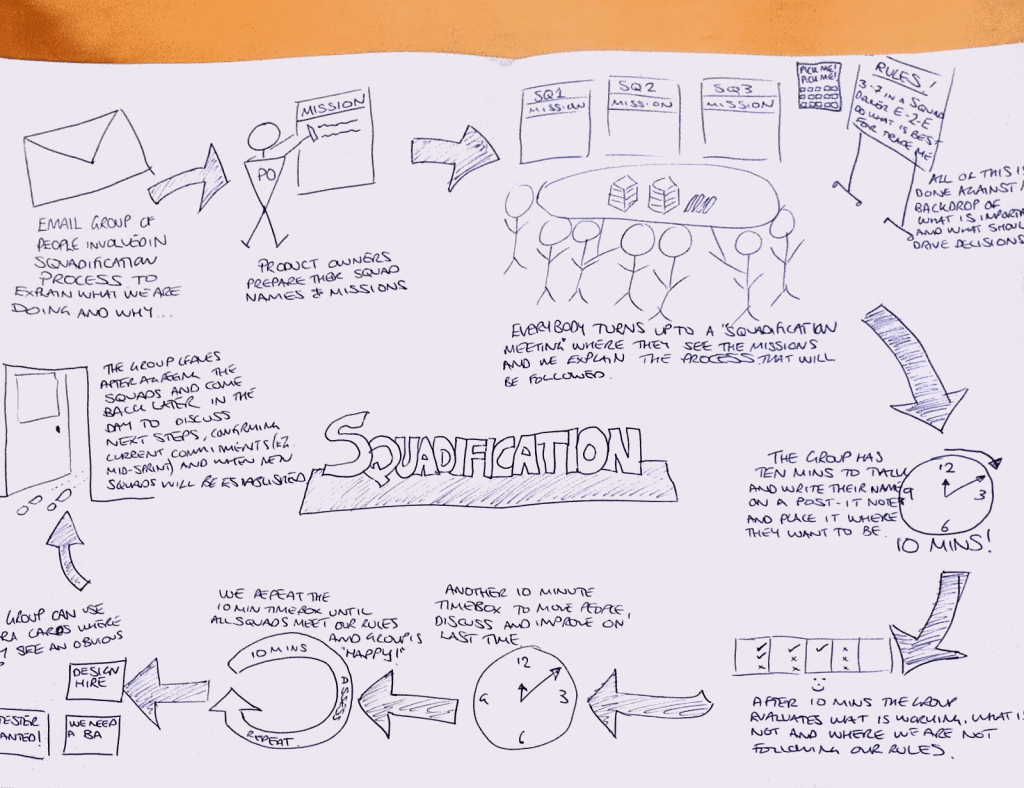 EMAIL GROUP OF
PEOPLE INVOLVED IN
SQUADIFICATION
PROCESS TO
EXPLAIN WHAT WE ARE
DOING AND WHY...
PO
MISSION
PRODUCT OWNERS
PREPARE THEIR SQUAD
NAMES & MISSIONS
SQ1
MISSION
SQ2
MISSION
SQ3
MISSION
PICK ME!
PICK ME!
RULES!
3-7 IN A SQUAD
DELIVER E-2-E
DO WHAT IS BEST
FOR TRADE ME
ALL OF THIS IS
DONE AGAINST A
BACKDROP OF
WHAT IS IMPORTA
AND WHAT SHOUL
DRIVE DECISIONS
EVERYBODY TURNS UP TO A "SQUADIFICATION
MEETING" WHERE THEY SEE THE MISSIONS
AND WE EXPLAIN THE PROCESS THAT WILL
BE FOLLOWED.
SQUADIFICATION
THE GROUP HAS
TEN MINS TO
AND WRITE THEIR NAME
ON A POST-IT NOTE
AND PLACE IT WHERE
THEY WANT TO BE.
12
3
6
9
10 MINS!
AFTER 10 MINS THE GROUP
EVALUATES WAT IS WORKING, WHAT IS
NOT AND WHERE WE ARE NOT
FOLLOWING OUR RULES.
ANOTHER 10 MINUTE
TIMEBOX TO MOVE PEOPLE,
DISCUSS AND IMPROVE ON
LAST TIME
12
3
6
9
WE REPEAT THE
10 MIN TIMEBOX UNTIL
ALL SQUADS MEET OUR RULES
AND GROUP IS
"HAPPY!"
10 MINS
ASSESS
REPEAT.
GROUP CAN USE
CARDS WHERE
SEE AN OBVIOUS
DESIGN
HIRE
TESTER
ANTED!
WE NEED
A BA
THE GROUP LEAVES
AFTER AGREEING THE
SQUADS AND COME
BACK LATER IN THE
DAY TO DISCUSS
NEXT STEPS, CONFIRMING
CURRENT COMMITMENTS
MID-SPRINT) AND WHEN NEW
SQUADS WILL BE ESTABLISHED